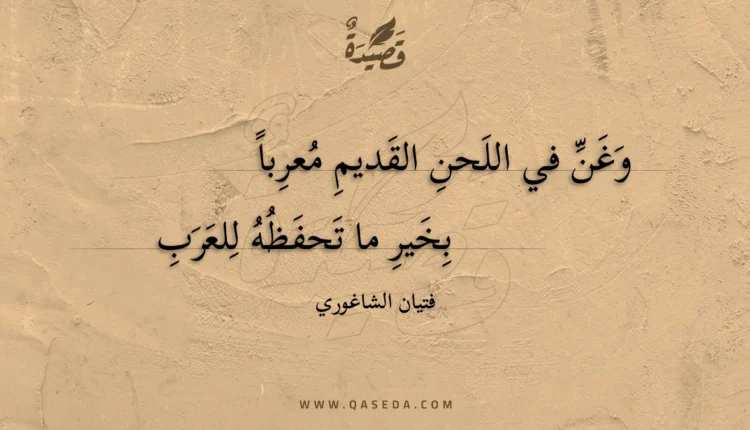 قَصِيْدَةٌ
وَغَنِّ في اللَحنِ القَديمِ مُعرِباً
بِخَيرِ ما تَحفَظُهُ لِلعَرَبِ
فتيان الشاغوري
WWW.QASEDA.COM